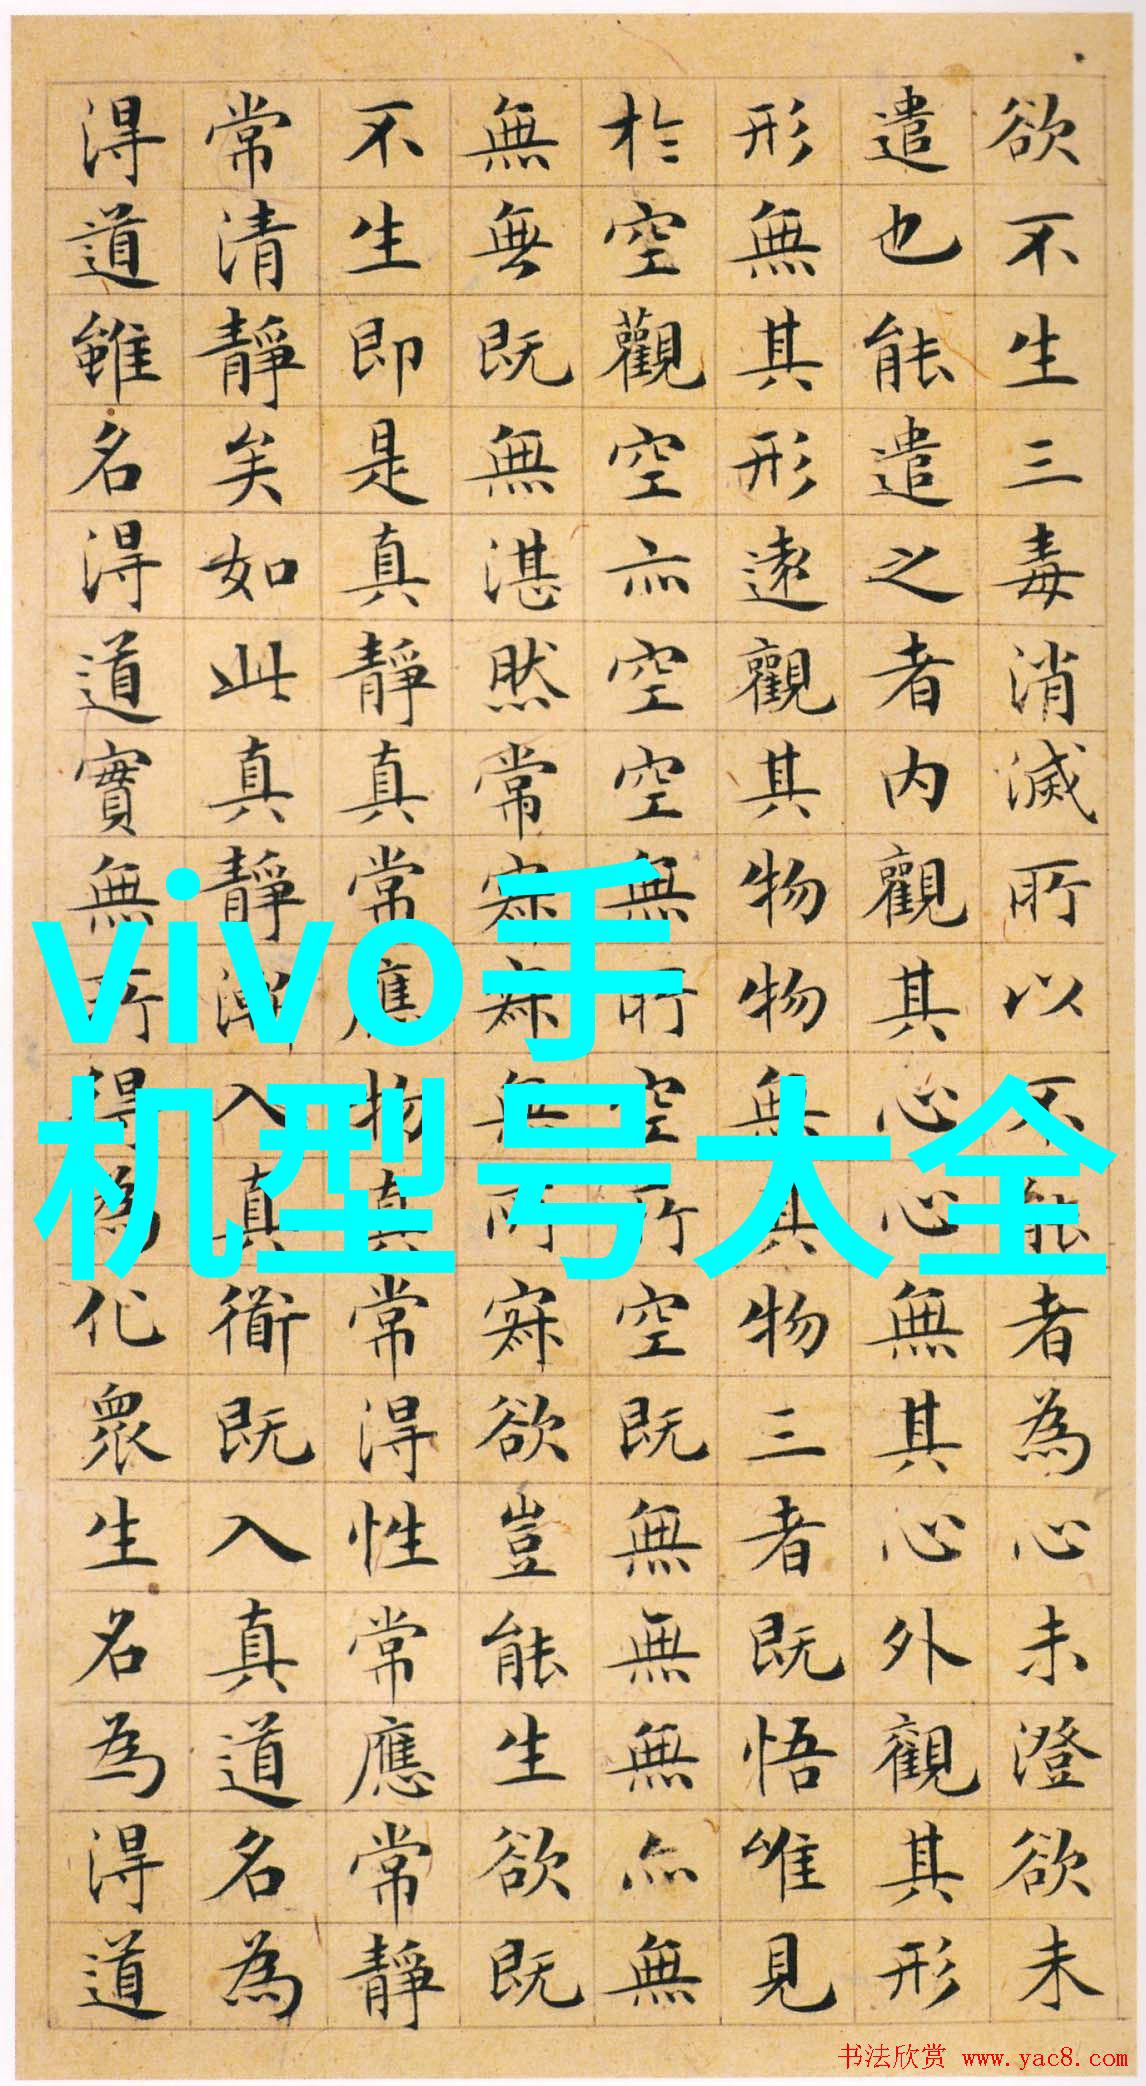 欲不生三毒消滅所以不能者為心未澄欲未
遣也能遣之者内觀其心心無其心外觀其形
形無其形遠觀其物物無其物三者既悟唯見
於空觀空亦空空無所空所空既無無無亦無
無無既無湛然常寂寂無所寂欲豈能生欲既
不生即是真靜真常應物真常得性常應常靜
常清靜矣如此真靜漸入真衜既入真道名為
得道雖名得道實無所得為化眾生名為得道
vivo手
机型号大全
书法欣赏 www.yac8.com